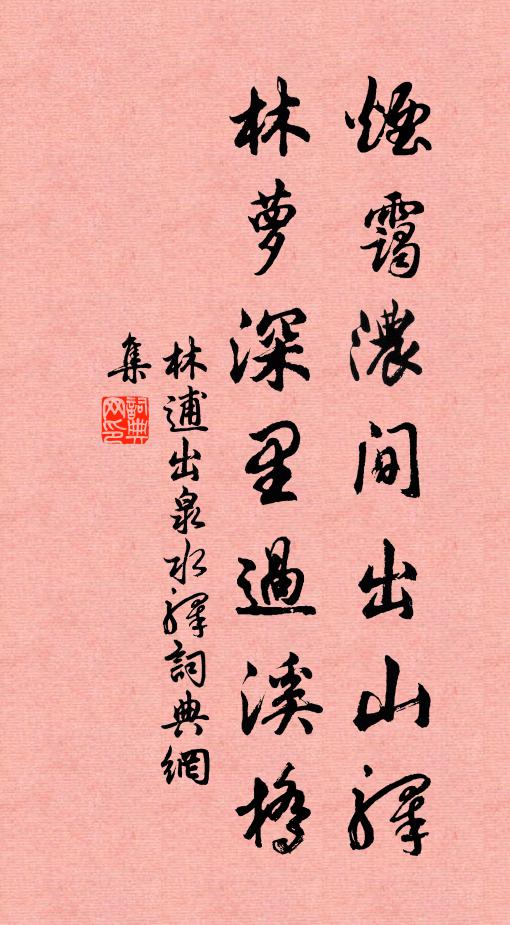 煙靄濃間出山驛
林萝深里過溪橋
林逋出泉水驛詞典網
集
詞典
网印